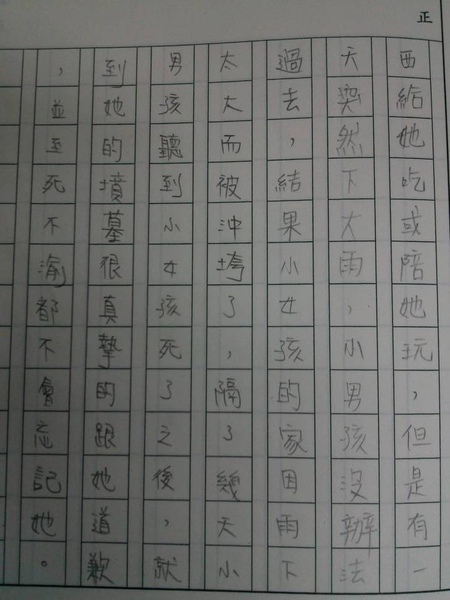 正
西給她吃或陪她玩，但是有一
天突然下大雨，小男孩沒辦法
過去，結果小女孩的家因雨下
太大而被沖垮了，隔了幾天小
男孩聽到小女孩死了之後，就
到她的墳墓很真摯的跟她道歉
，並至死不渝都不會忘記她。